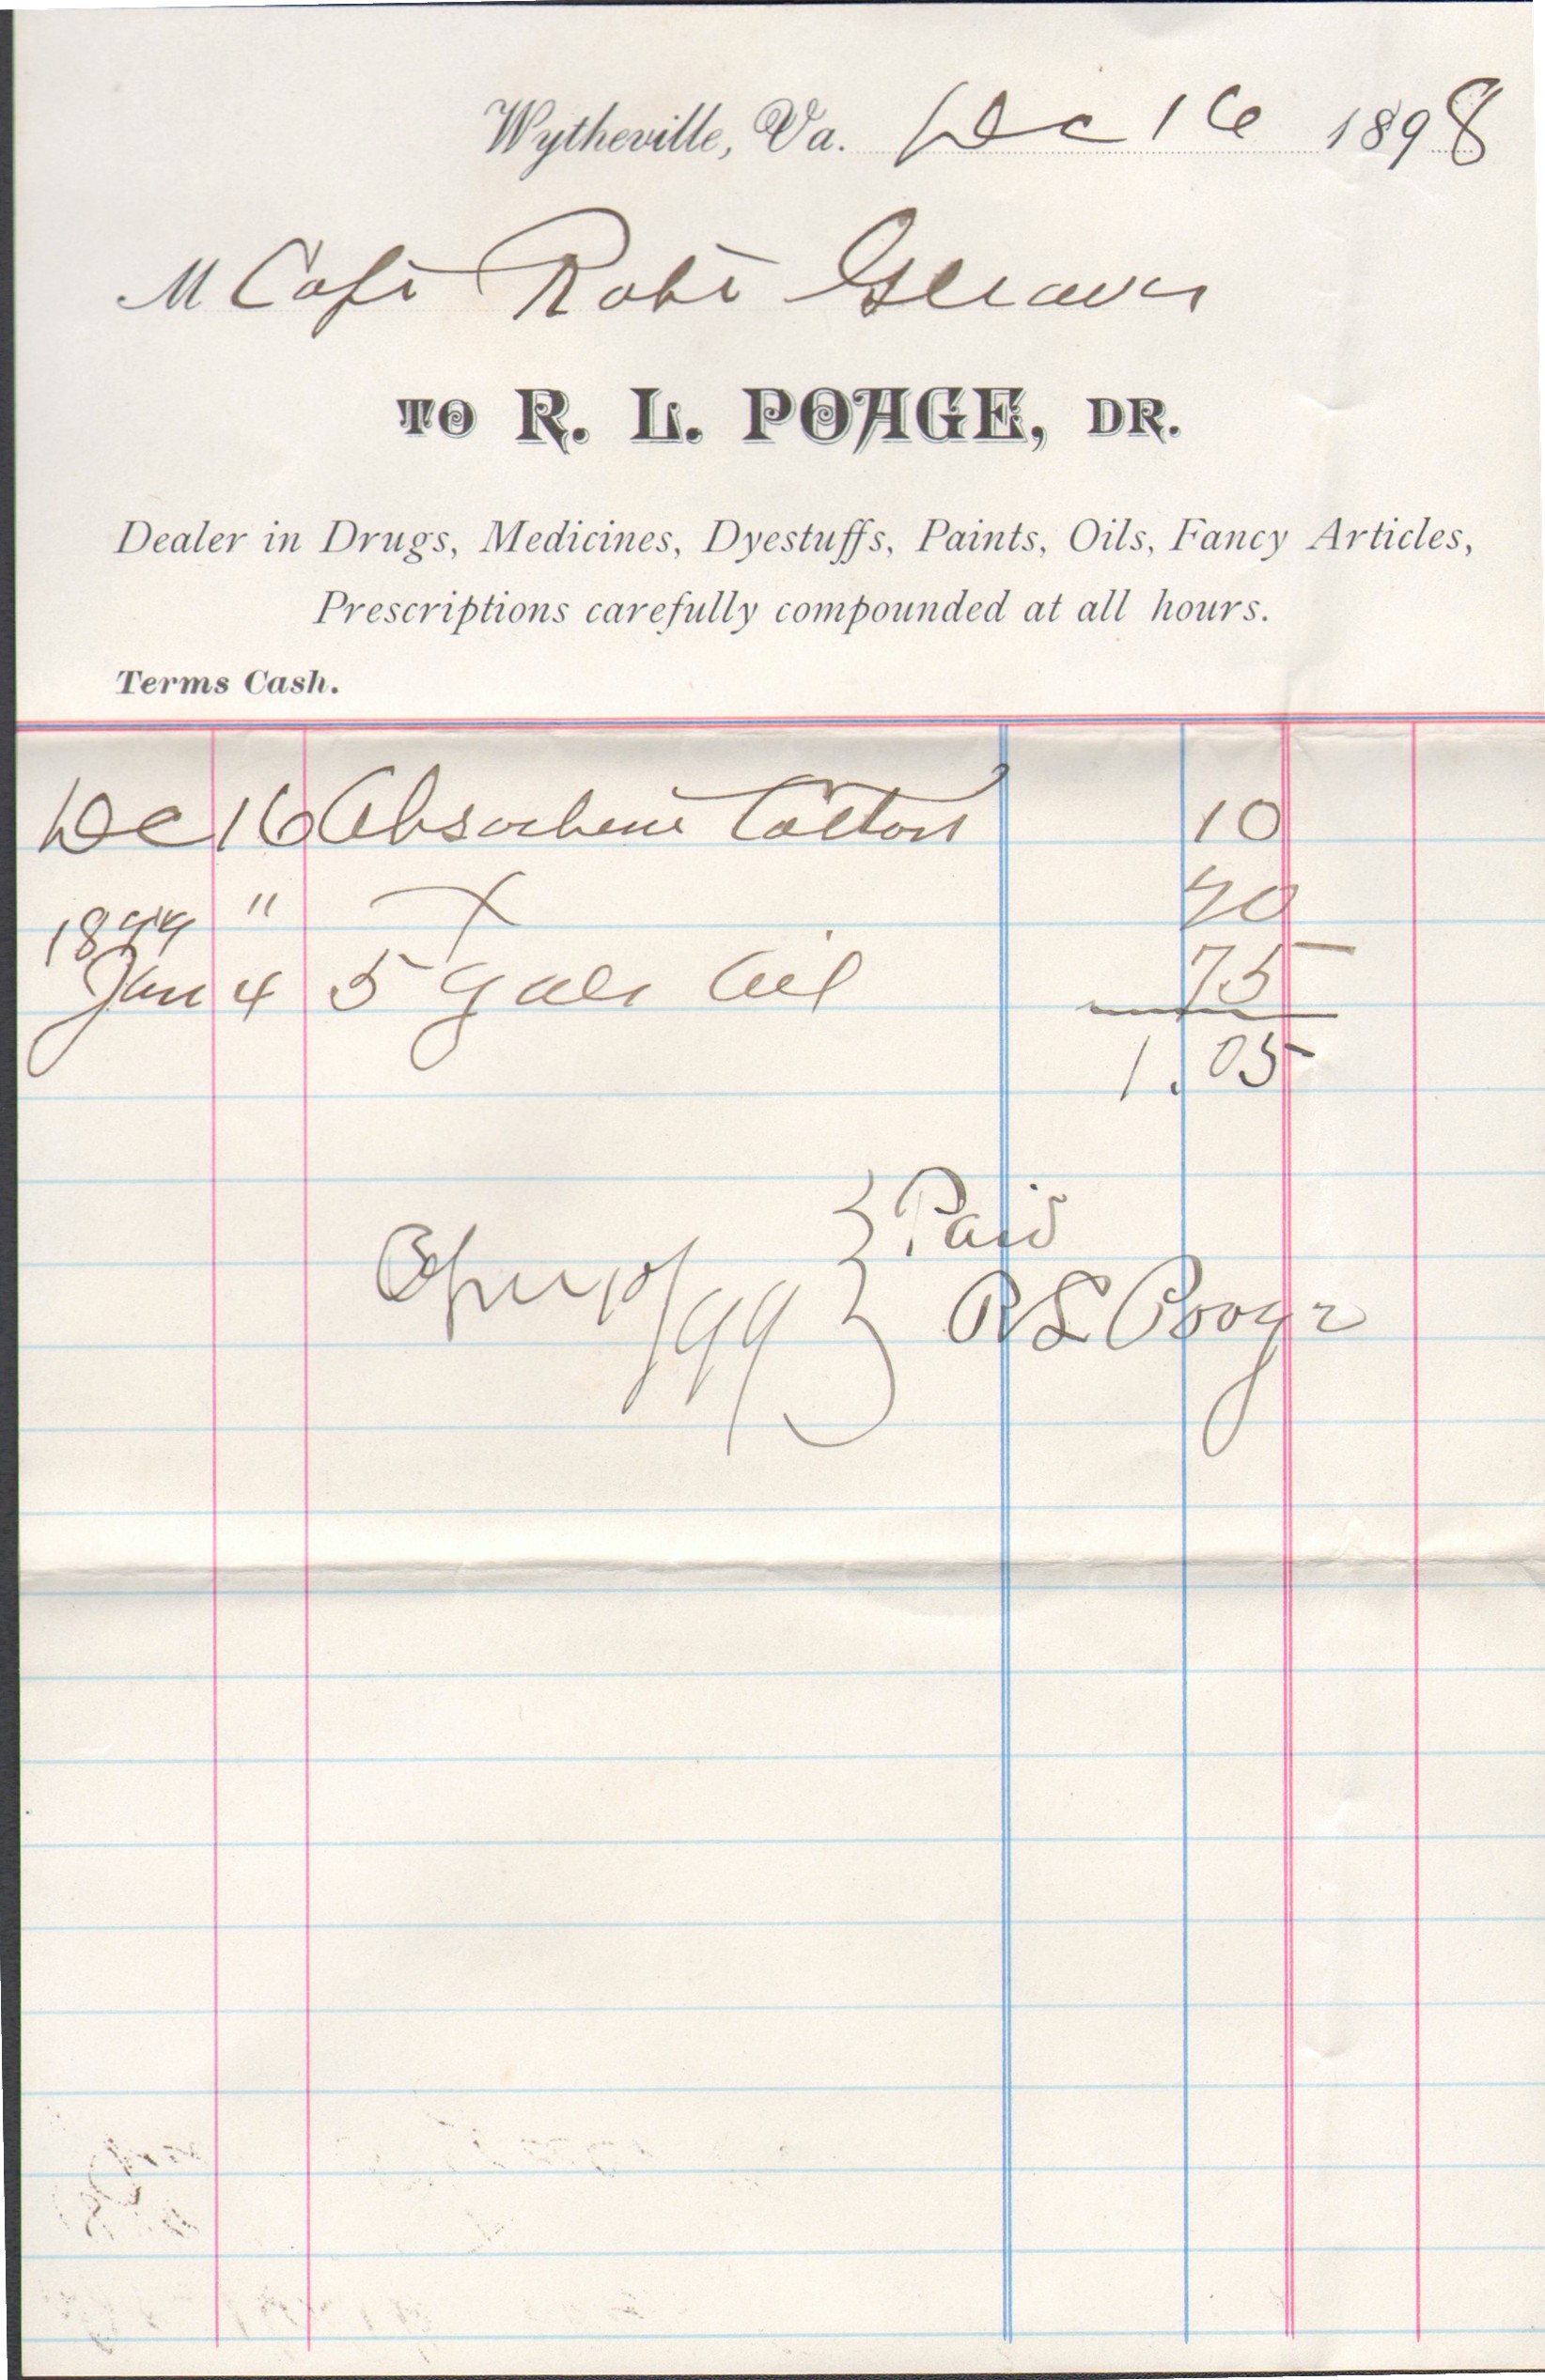 Wytheville, Va. Dec 16 1898
M Capt Robt Gleaves
TO R. L. POAGE, DR.
Dealer in Drugs, Medicines, Dyestuffs, Paints, Oils, Fancy Articles,
Prescriptions carefully compounded at all hours.
Terms Cash.
Dec 16 Absorbent Cotton 10
" X 20
1899
Jan 4 5 gals Oil 75
1.05
Paid
/99 R L Poage